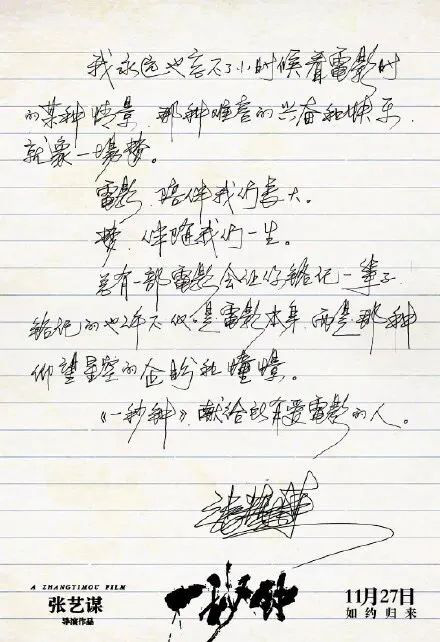 我永远也忘不了小时候看電影时
的某种情景，那种难言的兴奋和快乐，
就象一場梦。
電影，陪伴我们長大。
梦，伴随我们一生。
总有一部電影会让你铭记一辈子，
铭记的也许不仅是電影本身，而是那种
仰望星空的企盼和憧憬。
《一秒钟》，献给所有爱電影的人。
张艺谋
A ZHANGYIMOU FILM
张艺谋
导演作品
一秒钟
11月27日
如约归来